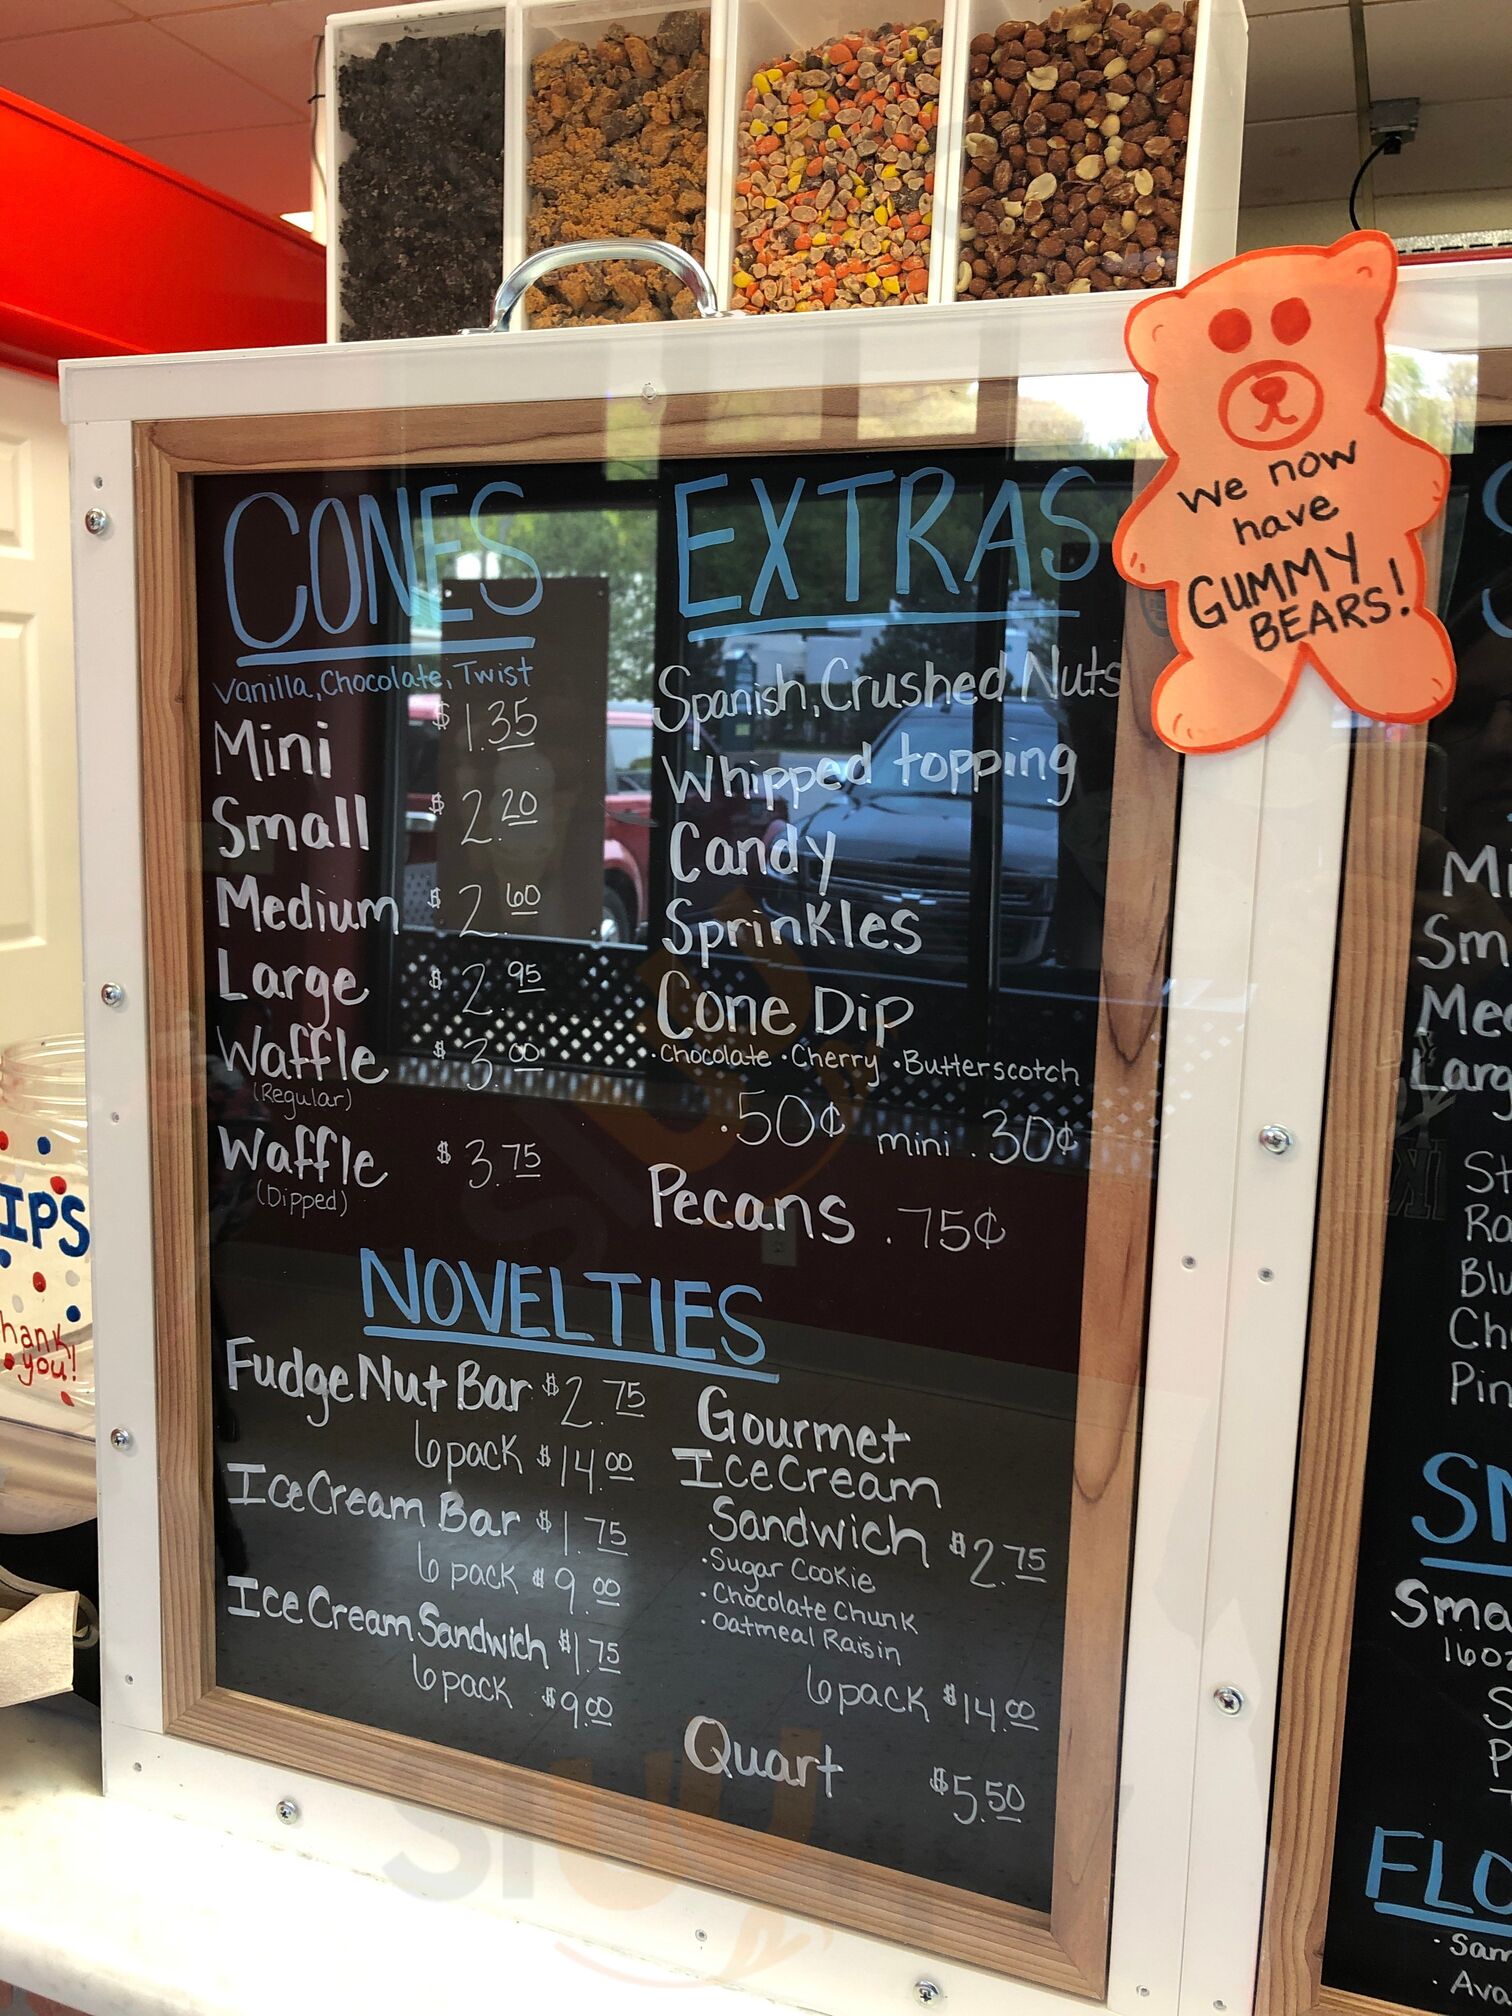 CONES
Vanilla, Chocolate, Twist
Mini $1.35
Small $2.20
Medium $2.60
Large $2.95
Waffle $3.00
(Regular)
Waffle $3.75
(Dipped)
EXTRAS
Spanish, Crushed Nuts
Whipped topping
Candy
Sprinkles
Cone Dip
·Chocolate ·Cherry ·Butterscotch
.50¢ mini .30¢
Pecans .75¢
NOVELTIES
Fudge Nut Bar $2.75
6pack $14.00
Ice Cream Bar $1.75
6 pack $9.00
Ice Cream Sandwich $1.75
6 pack $9.00
Gourmet
Ice Cream
Sandwich $2.75
·Sugar Cookie
·Chocolate Chunk
·Oatmeal Raisin
6pack $14.00
Quart $5.50
We now
have
GUMMY
BEARS!
IPS
hank
you!
Mi
Sm
Me
Larg
St
Ra
Blu
Ch
Pin
SN
Sma
16oz
S
P
FLO
· Sam
· Avo